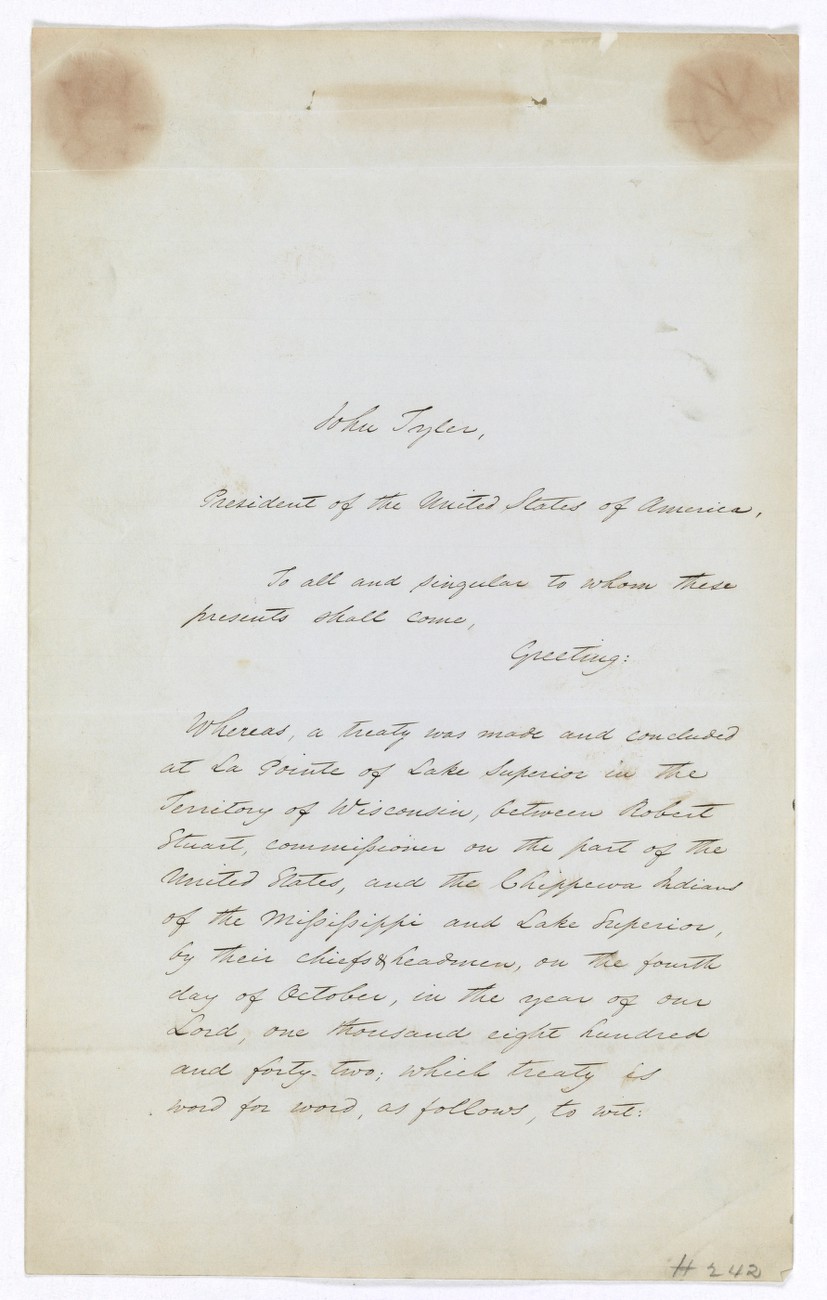 John Tyler,
President of the United States of America,
To all and singular to whom these
presents shall come,
Greeting:
Whereas, a treaty was made and concluded
at La Pointe of Lake Superior in the
Territory of Wisconsin, between Robert
Stuart, commissioner on the part of the
United States, and the Chippewa Indians
of the Mississippi and Lake Superior,
by their chiefs & headmen, on the fourth
day of October, in the year of our
Lord, one thousand eight hundred
and forty-two; which treaty is
word for word, as follows, to wit:
H 242